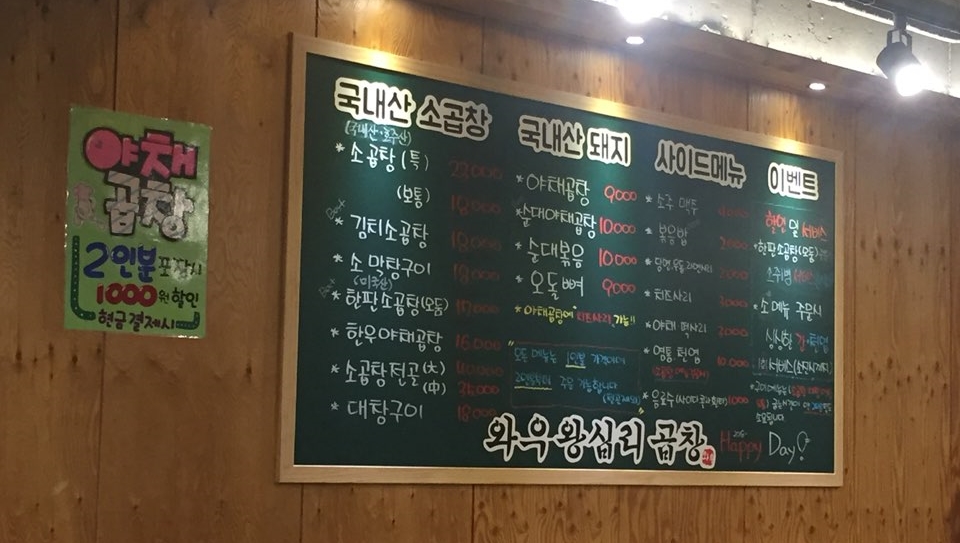 야채
곱창
2인분 포장시
1000원 할인
현금 결제시
국내산 소곱창
(국내산·호주산)
* 소곱창(특) 23,000
(보통) 18,000
* 김치소곱창 18,000
* 소막창구이 18,000
(미국산)
* 한판소곱창(모듬)
* 한우야채곱창 16,000
* 소곱창전골(大) 40,000
(中) 35,000
* 대창구이 18,000
국내산 돼지
* 야채곱창 9000
* 순대야채곱창 10000
* 순대볶음 10,000
* 오돌뼈 9000
* 야채곱창에 치즈사리 가능!!
모든 메뉴는 1인분 가격이며
2인분부터 주문 가능합니다
사이드메뉴
* 소주 맥주 4000
* 볶음밥 2000
* 당면.우동.라면사리 2000
* 치즈사리 3000
* 야채 떡사리 2000
* 염통 10,000
* 음료수 1000
이벤트
* 한판소곱창(모듬)
* 소메뉴 주문시
싱싱한 간·천엽
와우왕십리곱창
Happy Day!